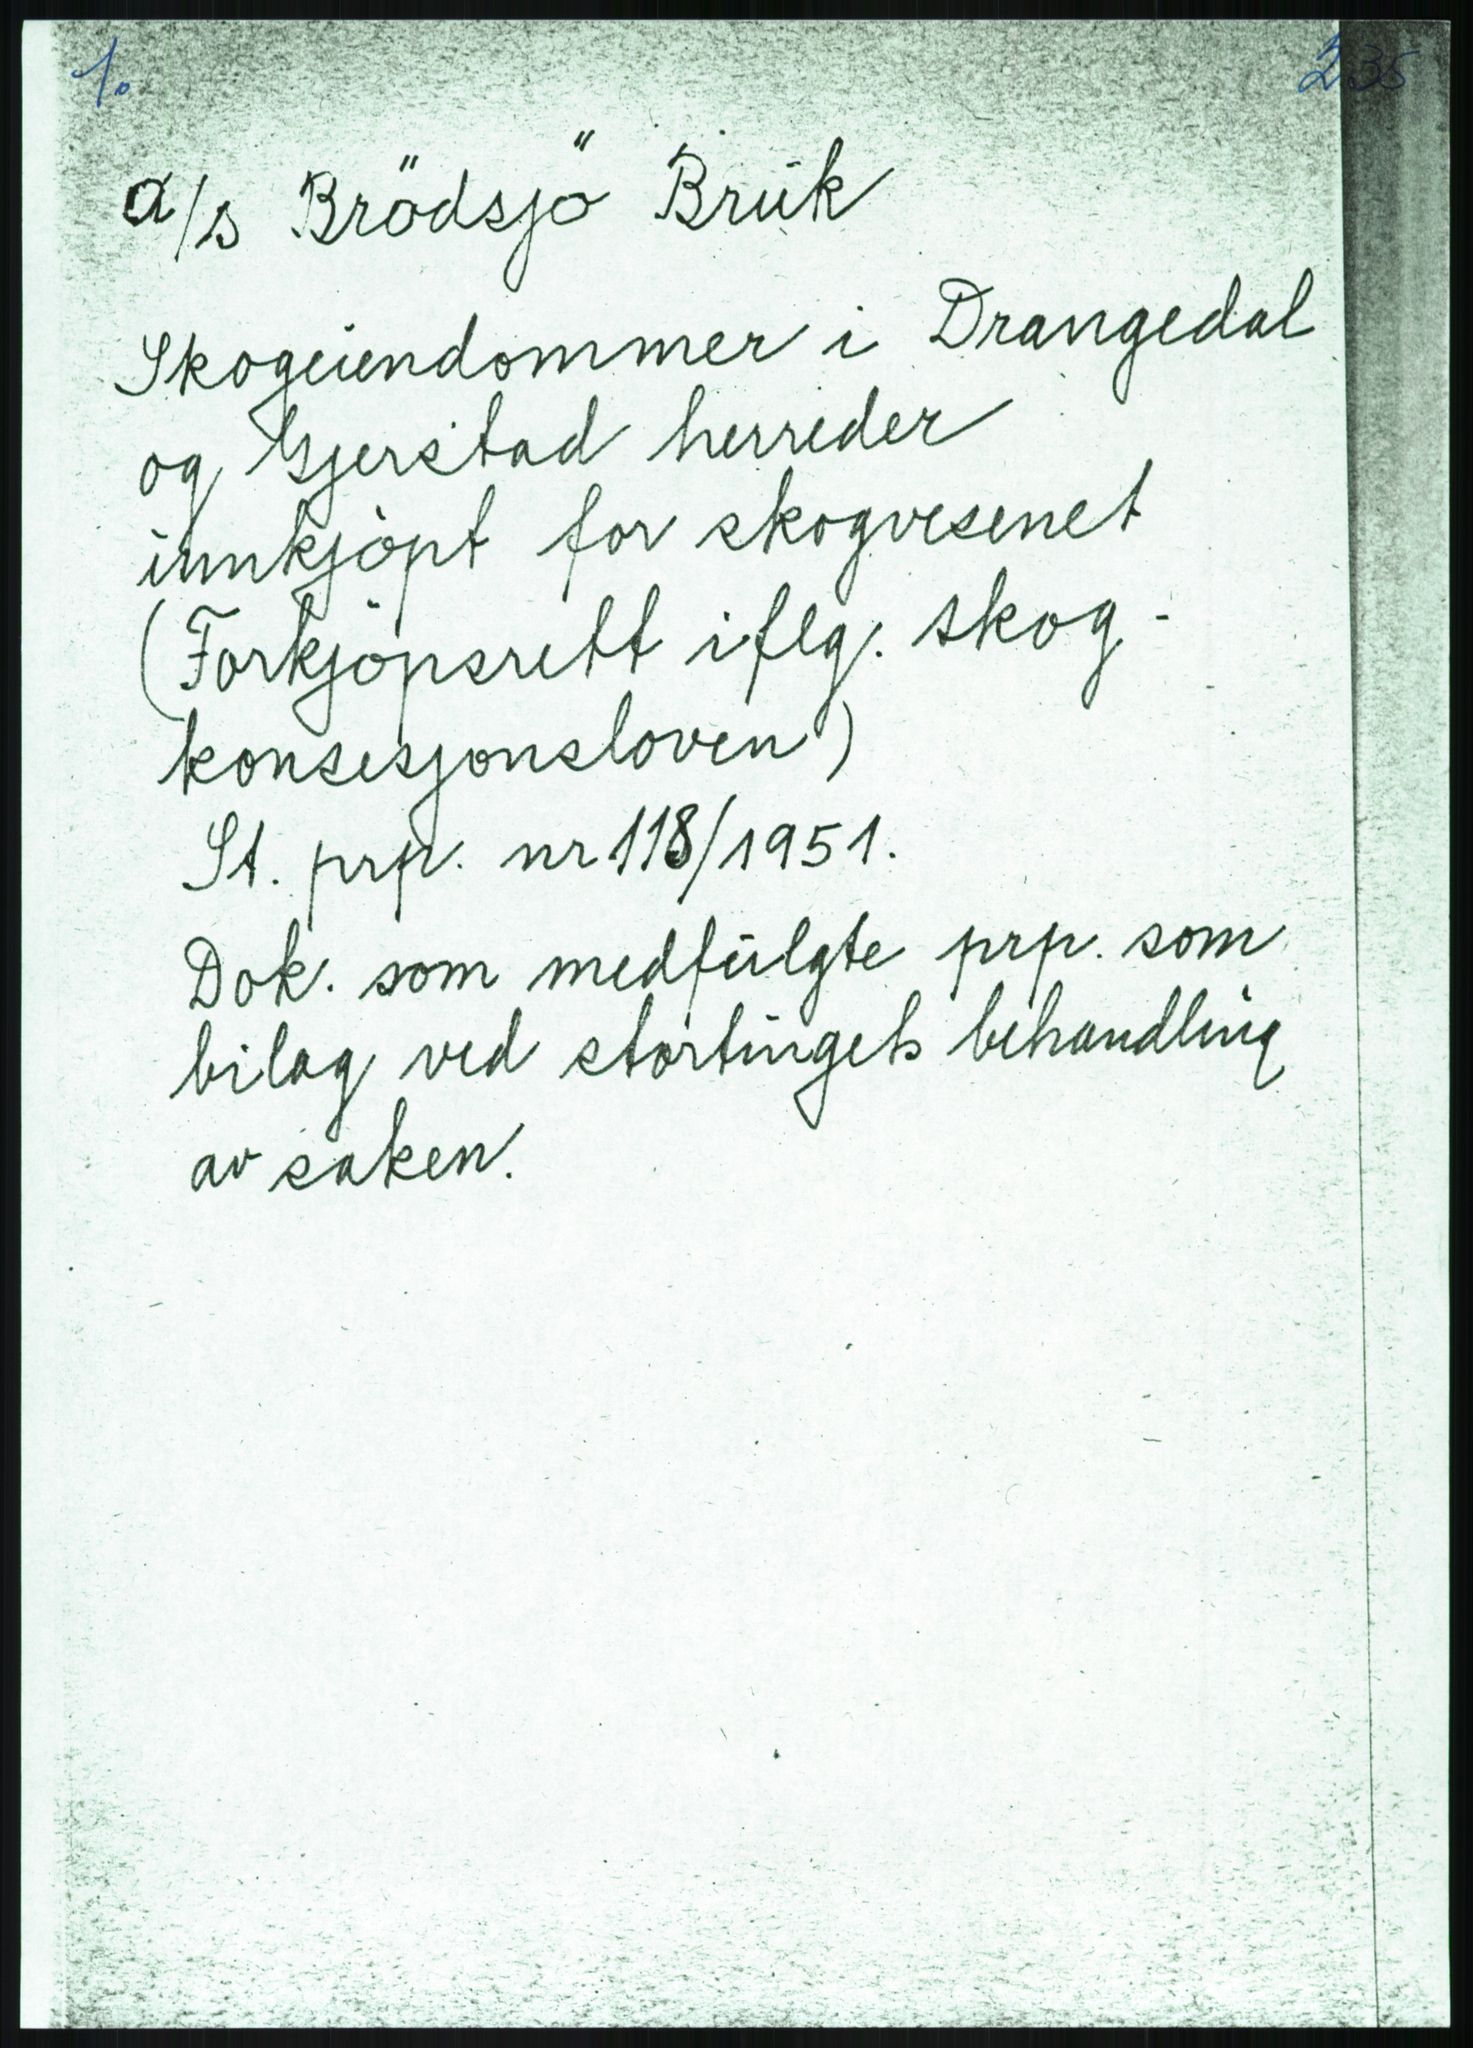 1. 235
a/s Brödsjö Bruk
Skogeiendommer i Drangedal
og Gjerstad herreder
innkjöpt for skogvesenet
(Forkjöpsrett iflg. skog-
konsesjonsloven)
St. prp. nr 118/1951.
Dok. som medfulgte prp. som
bilag ved stortingets behandling
av saken.